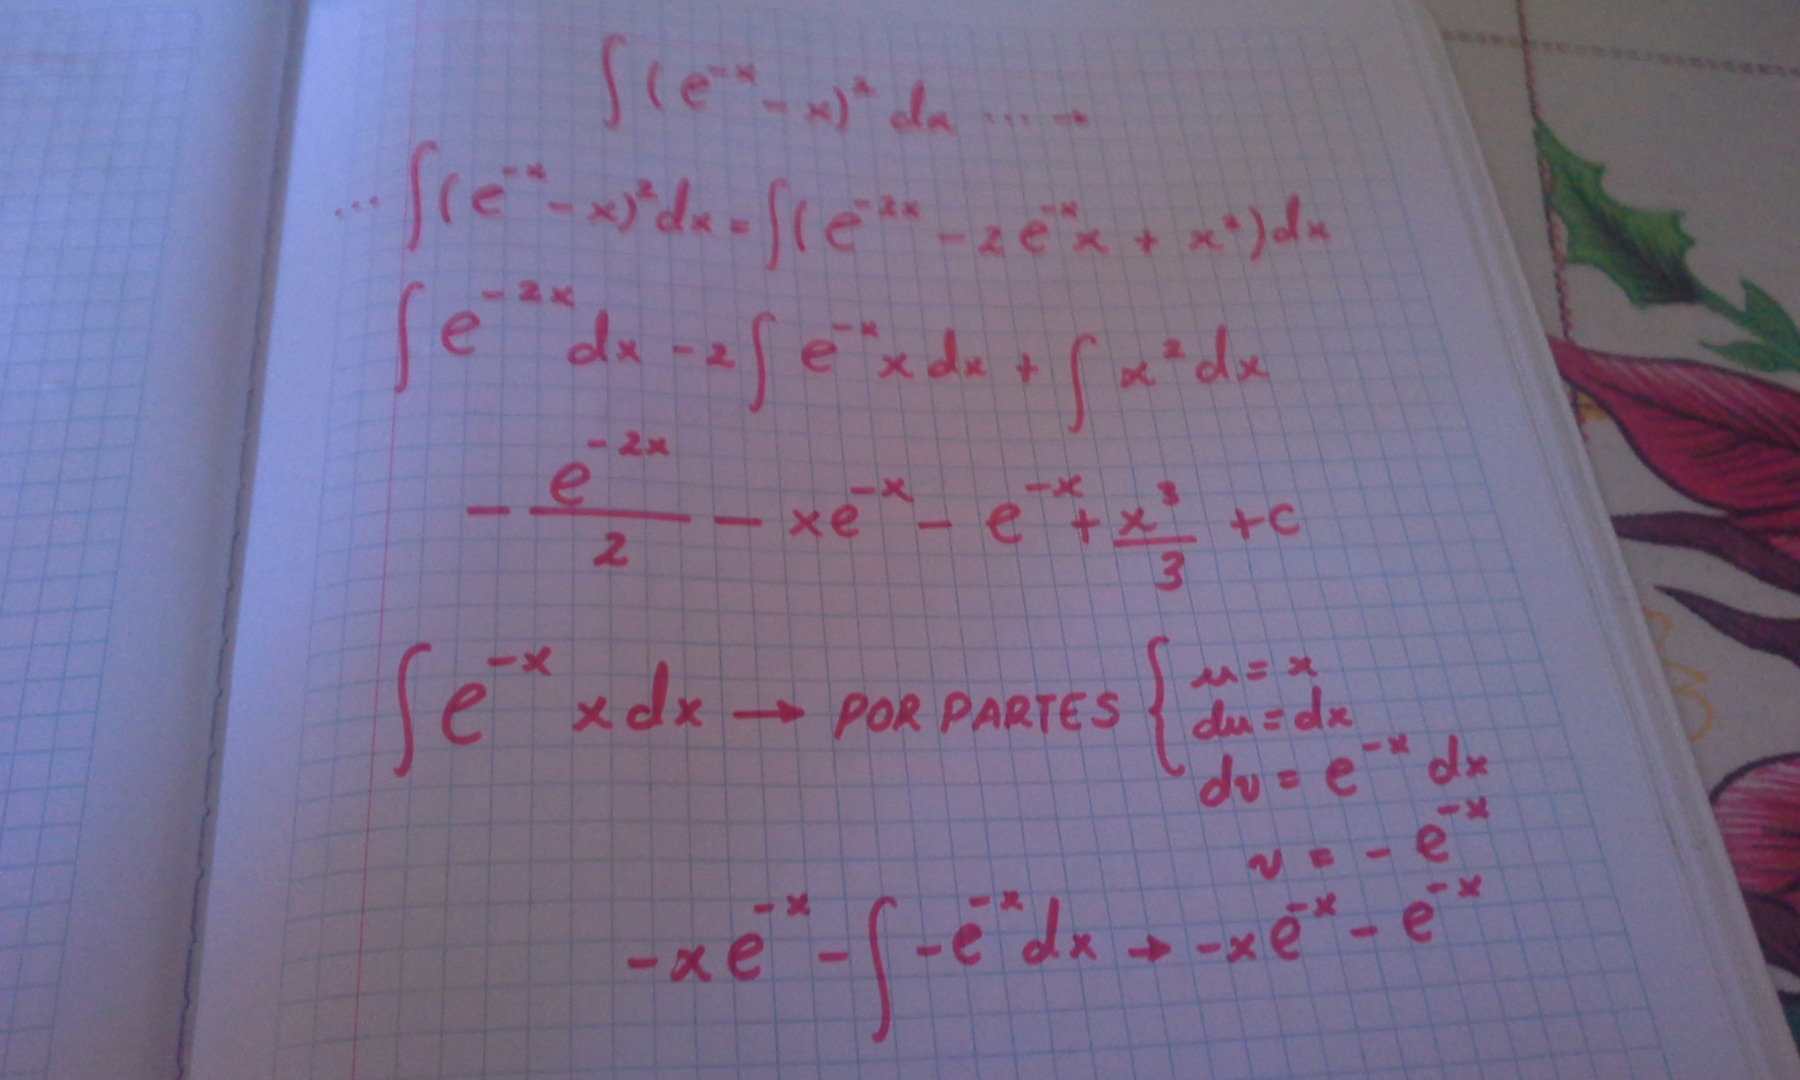 ∫(e^{-x} - x)^2 dx ... →
... ∫(e^{-x} - x)^2 dx = ∫(e^{-2x} - 2e^{-x}x + x^2)dx
∫ e^{-2x} dx - 2∫ e^{-x} x dx + ∫ x^2 dx
- e^{-2x}/2 - xe^{-x} - e^{-x} + x^3/3 + c
∫ e^{-x} x dx → POR PARTES { u = x
du = dx
dv = e^{-x} dx
v = - e^{-x}
-xe^{-x} - ∫ -e^{-x} dx → -xe^{-x} - e^{-x}